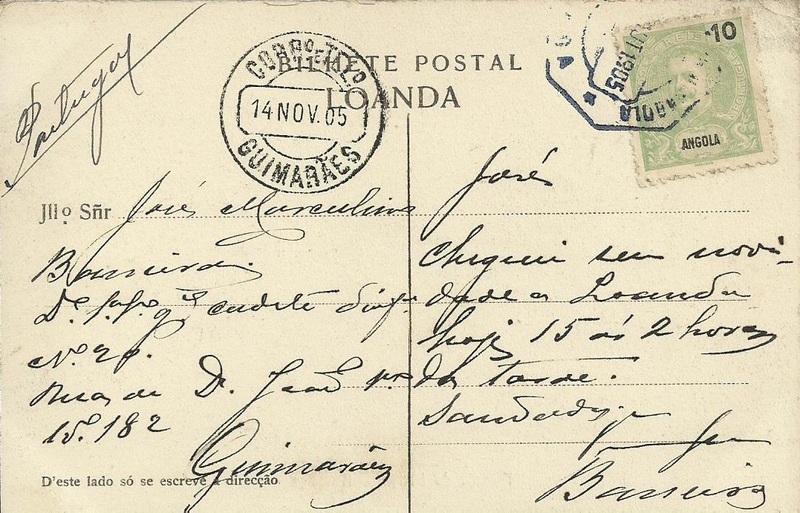 Portugal
BILHETE POSTAL
LOANDA
CORRO E TELO
14 NOV. 05
GUIMARÃES
10
ANGOLA
Jllo Sñr José Marculino
Barreira.
cadete
No. 20.
Rua de D. João 1º
15. 182
Guimarães
D'este lado só se escreve a direcção
José
Cheguei sem novi-
dade a Loanda
hoje 15 ás 2 horas
da tarde.
Saudades
Barreira